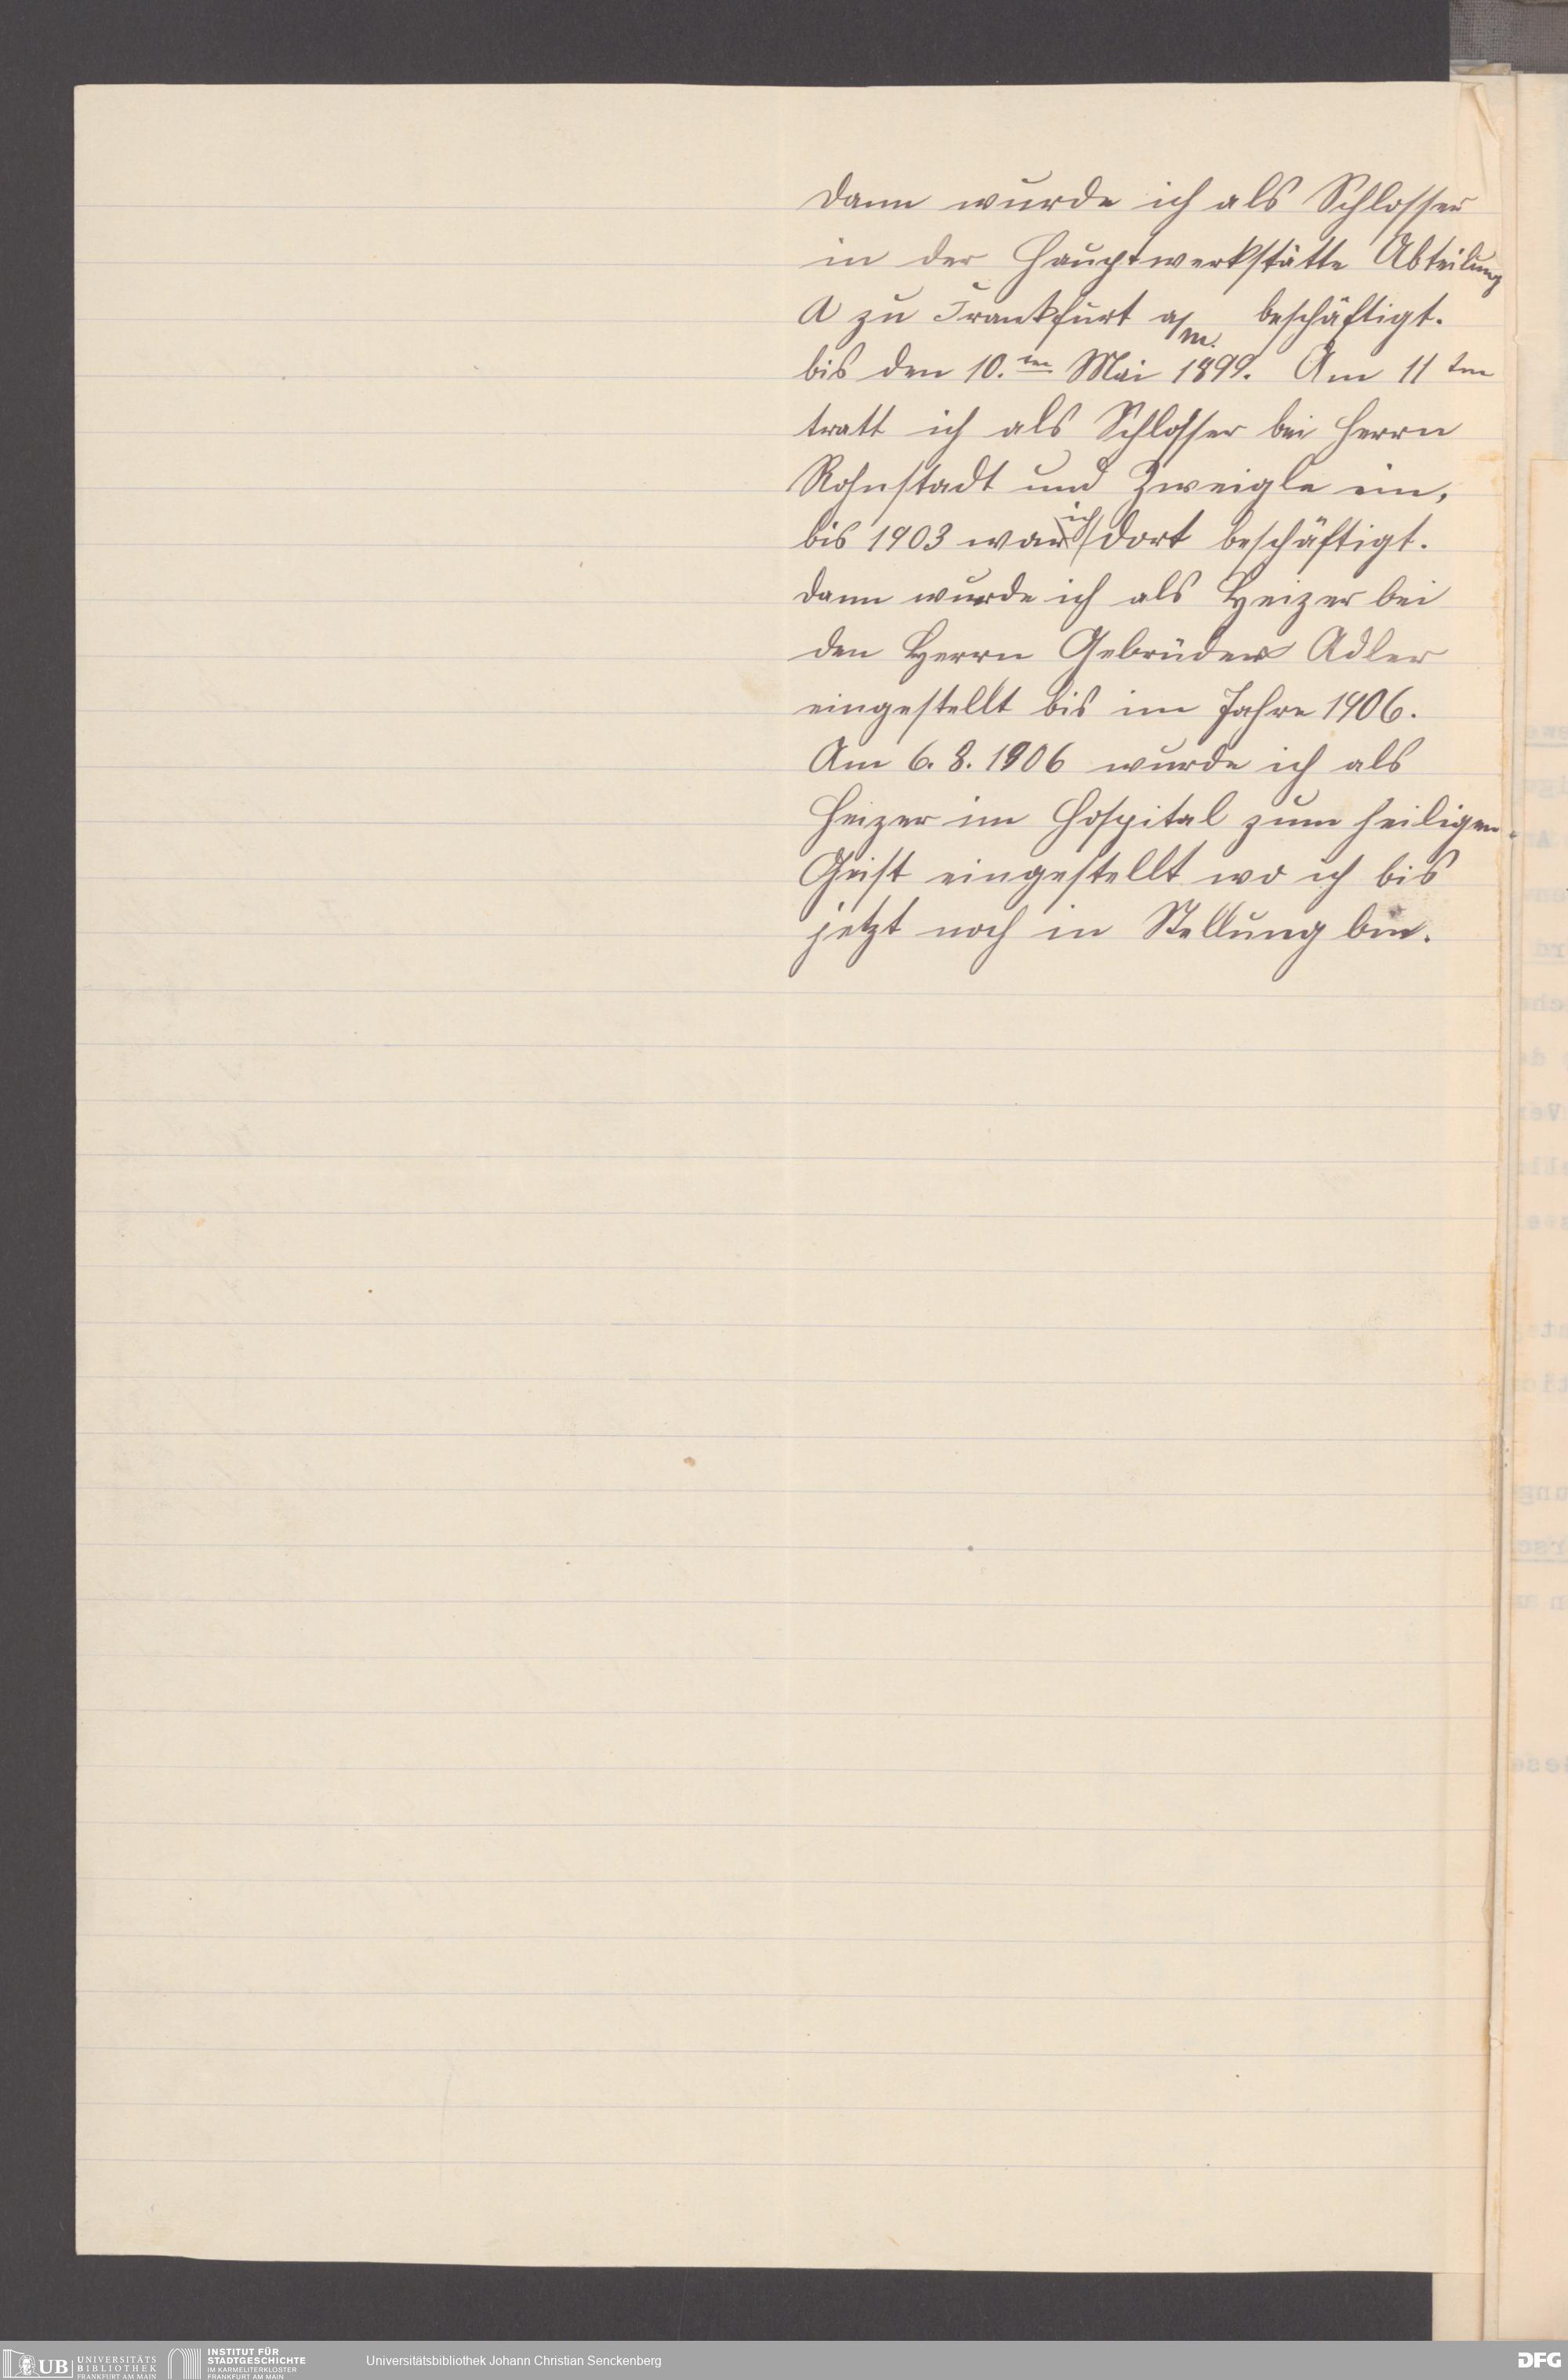 dann wurde ich als Schlosser
in der Hauptwerkstätte Abteilung
A zu Frankfurt a/M. beschäftigt.
bis den 10.ten Mai 1899. Am 11ten
tratt ich als Schlosser bei Herrn
Rohnstadt und Zweigle ein,
bis 1903 war ich dort beschäftigt.
dann wurde ich als Heizer bei
den Herrn Gebrüder Adler
eingestellt bis im Jahre 1906.
Am 6. 8. 1906 wurde ich als
Heizer im Hospital zum heiligen
Geist eingestellt wo ich bis
jetzt noch in Stellung bin.
UB UNIVERSITÄTS
BIBLIOTHEK
FRANKFURT AM MAIN
INSTITUT FÜR
STADTGESCHICHTE
IM KARMELITERKLOSTER
FRANKFURT AM MAIN
Universitätsbibliothek Johann Christian Senckenberg
DFG